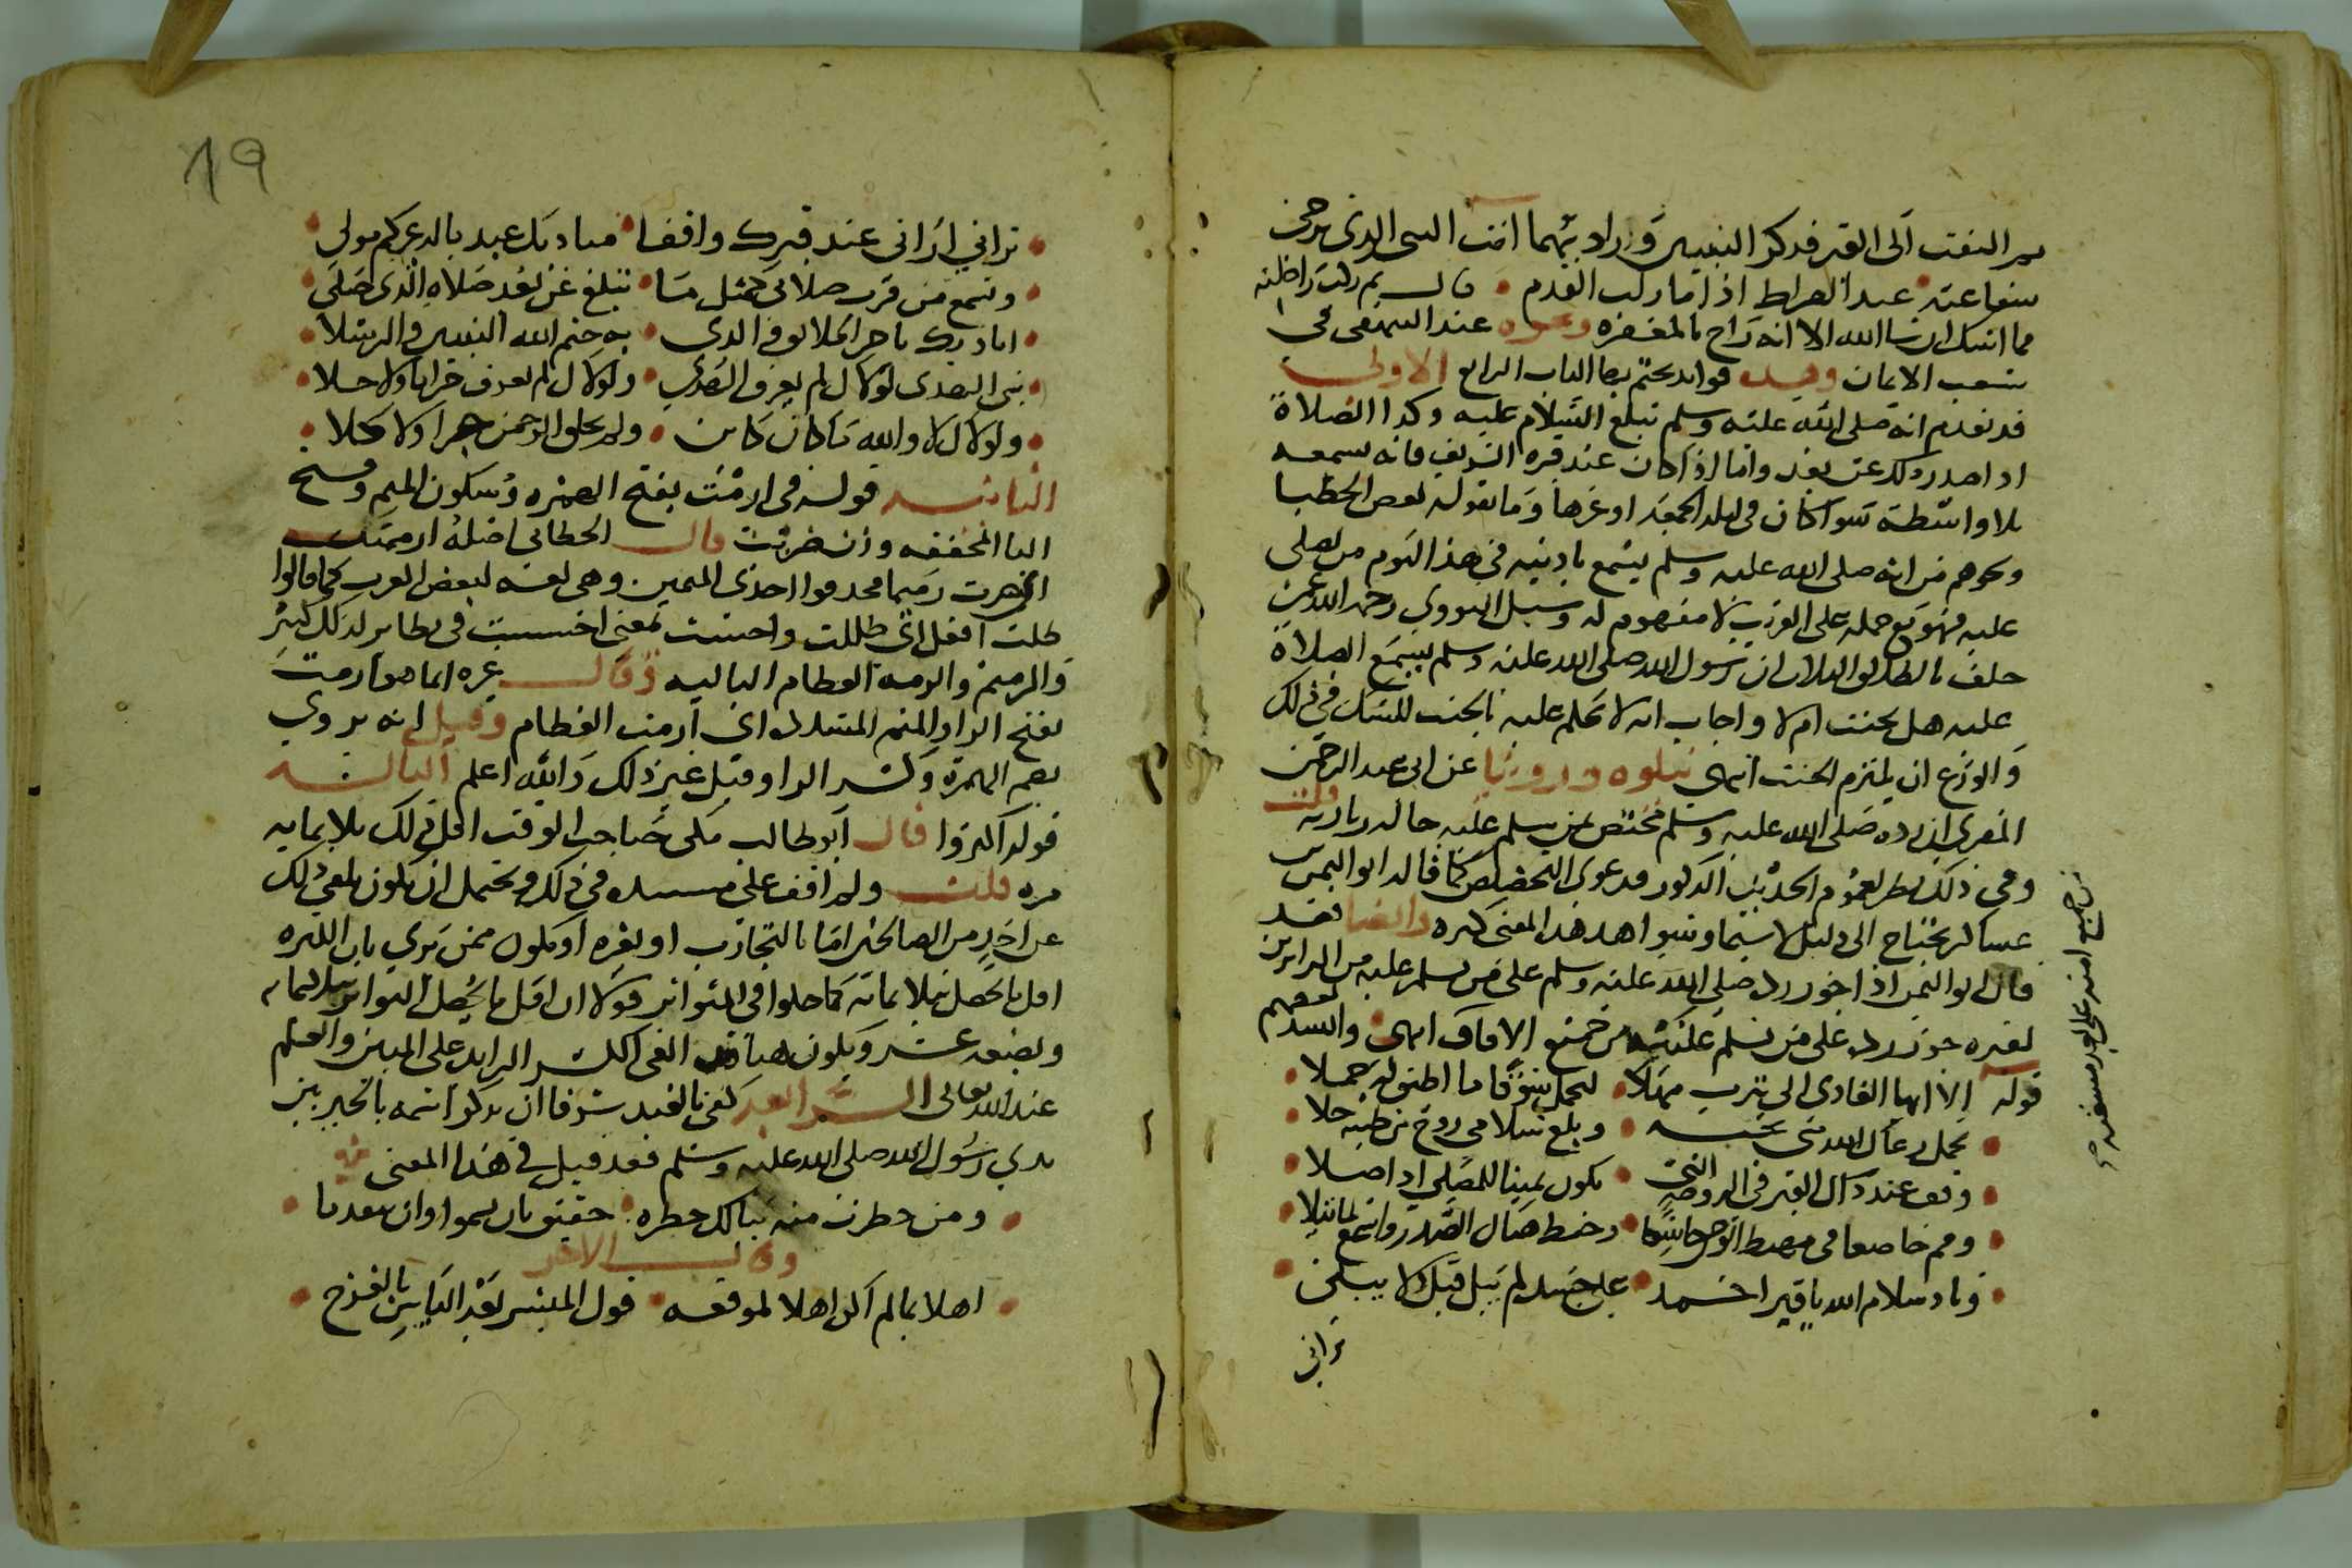 ثم التفت الى القبر فذكر البيتين وزاد بينهما انت النبي الذي ترجى
شفاعته عند الصراط اذا ما زلت القدم قال ثم ركب راحلته
فما اشك ان شا الله الا انه راح بالمغفرة ونحوه عند البيهقي في
شعب الايمان وهذه فوايد نختم بها الباب الرابع الاولى
قد تقدم انه صلى الله عليه وسلم تبلغ السلام عليه وكذا الصلاة
اذا صدر ذلك عن بعد واما اذا كان عند قبره الشريف فانه يسمعه
بلا واسطة سوا كان في ليلة الجمعة او غيرها وما يقوله بعض الخطبا
ونحوهم من انه صلى الله عليه وسلم يسمع باذنيه في هذا اليوم من يصلي
عليه فهو مع حمله على القرب لا مفهوم له وسيل النووي رحمه الله عمن
حلف بالطلاق الثلاث ان رسول الله صلى الله عليه وسلم يسمع الصلاة
عليه هل يحنث ام لا واجاب انه لا يحكم عليه بالحنث للشك في ذلك
والورع ان يلتزم الحنث انتهى وروينا عن ابي عبد الرحمن
المقري ان رده صلى الله عليه وسلم مختص بمن يسلم عليه حالة زيارته قلت
وفي ذلك نظر لعموم الحديث المذكور فدعوى التخصيص كما قاله ابو اليمن
عساكر يحتاج الى دليل لا سيما وشواهد هذا المعنى كثيرة وايضا فقد
قال ابو اليمن اذا جوز رده صلى الله عليه وسلم على من يسلم عليه من الزايرين
لقبره جوز رده على من يسلم عليه من جميع الافاق انتهى وانشد بعضهم
من جميع امته على بعد
قوله الا ايها الغادي الى يثرب مهلا لتحمل شوقا ما اطيق له حملا
تحمل رعاك الله مني تحية وبلغ سلامي روح من طيبة حلا
وقف عند ذاك القبر في الروضة التي تكون يمينا للمصلي اذا صلا
وقم خاضعا في مهبط الوحي خاشعا وخفض هناك الصدر واسمع لما يتلا
وناد سلام الله يا قبر احمد على جسد لم يبل قبلك لا يبلى
تراني
19
تراني اراني عند قبرك واقفا يناديك عبد ما له غيركم مولى
وتسمع من قرب صلاتي كمثل ما تبلغ عن بعد صلاة الذي صلى
اناديك يا خير الخلايق والذي به ختم الله النبيين والرسلا
نبي الهدى لولاك لم يعرف الهدى ولولاك لم نعرف حراما ولا حلا
ولولاك لا والله ما كان كاين ولم يخلق الرحمن جزا ولا كلا
الثانية قوله في ارمت بفتح الهمزة وسكون الميم وفتح
التا المخففة وزن ضربت قال الخطابي اصله ارممت
اي صرت رميما فحذفوا احدى الميمين وهي لغة لبعض العرب كما قالوا
ظلت افعل اي ظللت واحست بمعنى احسست في نظاير لذلك كثير
والرميم والرمة العظام البالية وقال غيره انما هو ارمت
بفتح الرا والميم المشددة اي ارمت العظام وقيل انه يروى
بضم الهمزة وكسر الرا وقيل غير ذلك والله اعلم الثالثة
قوله اكثروا قال ابو طالب مكي صاحب القوت اقل ذلك ثلاثماية
مرة قلت ولم اقف على مستنده في ذلك ويحتمل ان يكون تلقى ذلك
عن احد من الصالحين اما بالتجارب او بغيره او يكون ممن يرى بان الكثرة
اقل ما تحصل بثلاثماية كما حلوا في المتواتر قولا ان اقل ما يحصل التواتر بثلاثماية
وبضعة عشر ويكون هنا قد الغى الكسر الزايد على المئين والعلم
عند الله تعالى الرابعة كفى بالعبد شرفا ان يذكر اسمه بالخير بين
يدي رسول الله صلى الله عليه وسلم فقد قيل في هذا المعنى
ومن خطرت منه ببالك خطرة حقيق بان يسمو وان يتقدما
وقال الاخر
اهلا بما لم اكن اهلا لموقعه قول المبشر بعد الياس بالفرج